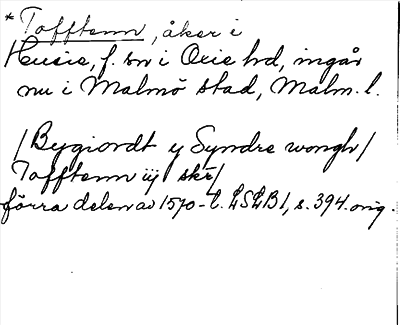 * Tofftenn, åker i
Husie, f. sn i Oxie hd, ingår
nu i Malmö stad, Malm. l.
/Bygiordt y Syndre wongh/
Tofftenn iij ske/
förra delen av 1570-t. LSLB1, s. 394. orig.